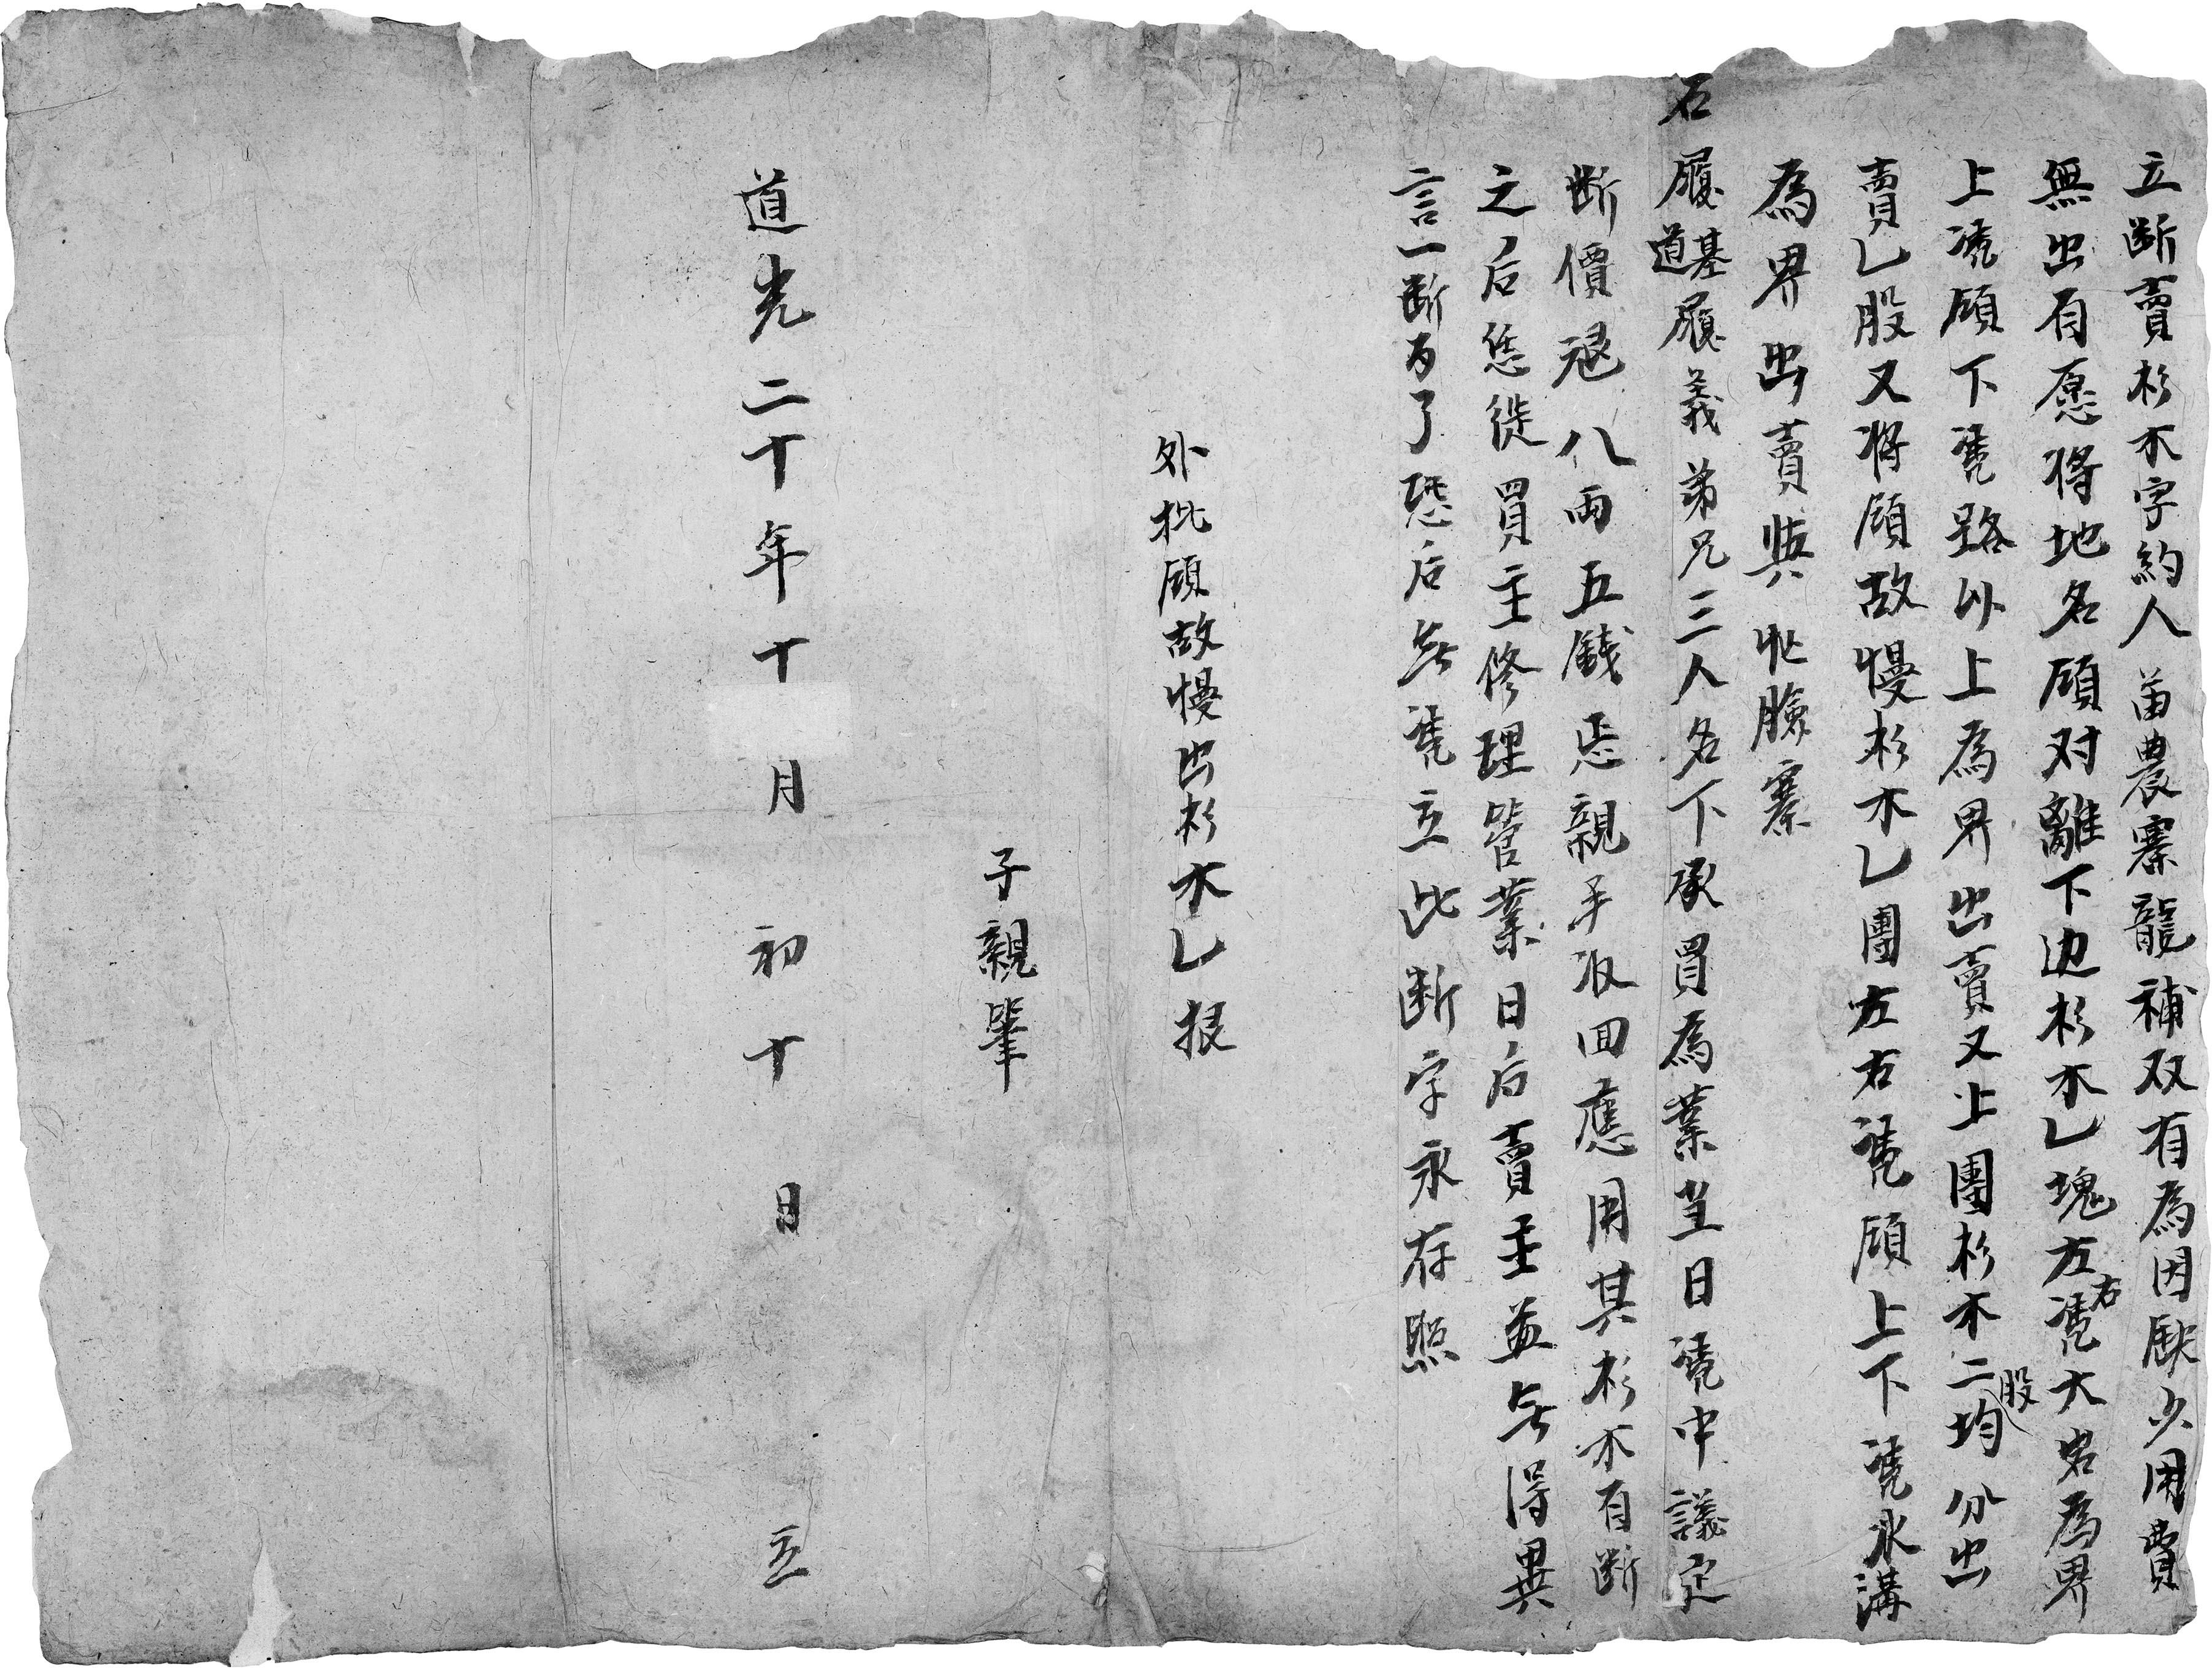 立断賣杉木字約人苗農寨龍補双有為因厭少用費
無出自愿将地名頋对離下边杉木乚塊左右凴大岩為界
上凴頋下凴路以上為界出賣又上團杉木二股均分出
賣乚股又将頋故慢杉木乚團左右凴頋上下凴水溝
為界出賣與化臉寨
石履道基履義弟兄三人名下承買為業当日凴中議定
断價艮八两五錢正亲親手收回應用其杉木自断
之后恁従買主修理管業日后賣主並无得異
言一断百了恐后无凴立此断字永存照
外批頋故慢出杉木乚根
子親筆
道光二十年十月初十日立